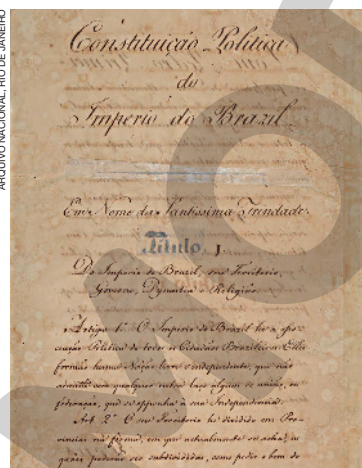 ARQUIVO NACIONAL, RIO DE JANEIRO
Constituição Politica
do
Imperio do Brazil
Em Nome da Santissima Trindade.
Titulo 1.
Do Imperio do Brazil, seu Territorio,
Governo, Dynastia e Religião.
Artigo 1º O Imperio do Brazil he a asso-
ciação Politica de todos os Cidadãos Brazileiros. Elles
formão huma Nação livre e independente, que não
admitte com qualquer outra laço algum de união, ou
federação, que se opponha á sua Independencia.
Art. 2º O seu Territorio he dividido em Pro-
vincias na forma, em que actualmente se acha, as
quaes poderão ser subdivididas, como pedir o bem do